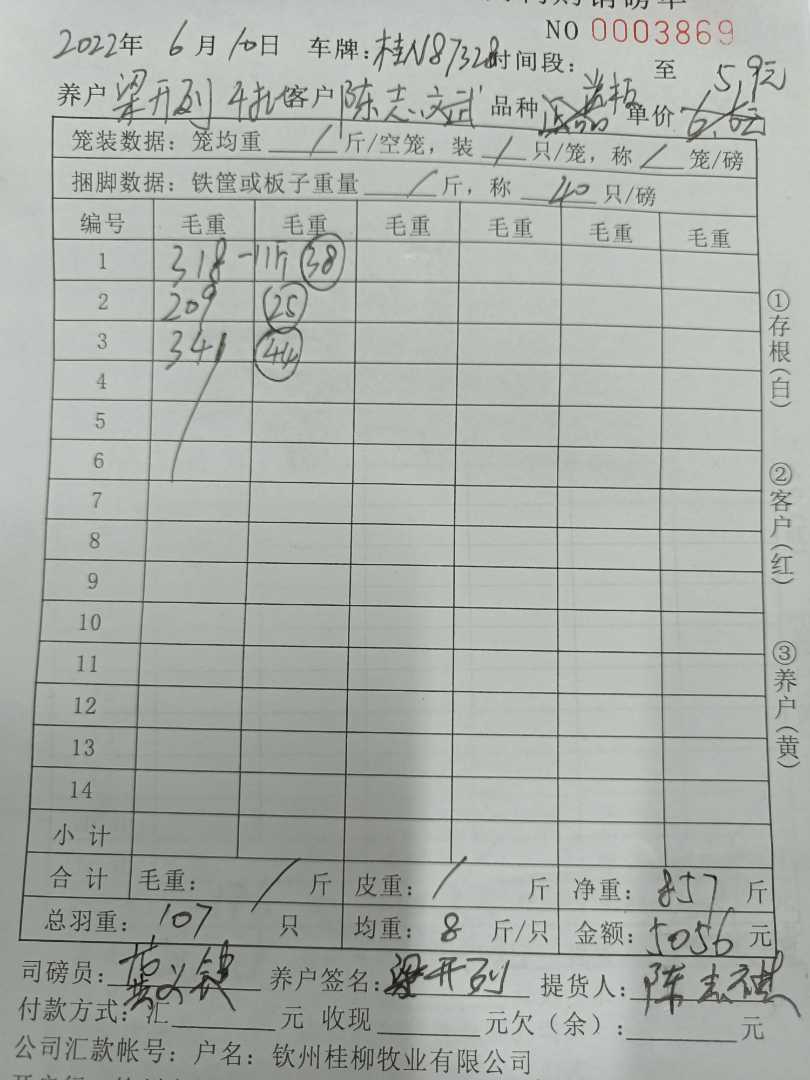 NO 0003869
2022年 6月10日 车牌:桂N87328 时间段: 至 5.9元
养户 梁开列 客户 陈志 品种 单价 6.6元
笼装数据:笼均重 / 斤/空笼,装 / 只/笼,称 / 笼/磅
捆脚数据:铁筐或板子重量 / 斤,称 40 只/磅
编号 毛重 毛重 毛重 毛重 毛重 毛重
1 318 -11斤 38
2 209 25
3 341 44
4
5
6
7
8
9
10
11
12
13
14
小计
合计 毛重: / 斤 皮重: / 斤 净重: 857 斤
总羽重: 107 只 均重: 8 斤/只 金额: 5056 元
司磅员: 养户签名: 梁开列 提货人: 陈志
付款方式:汇 元 收现 元欠(余): 元
公司汇款帐号:户名:钦州桂柳牧业有限公司
①存根(白)
②客户(红)
③养户(黄)